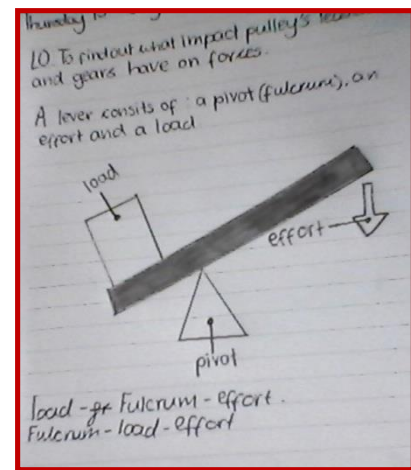 Thursday
LO. To findout what impact pulley's
and gears have on forces.
A lever consits of : a pivot (fulcrum), an
effort and a load
load
effort
pivot
load - Fulcrum - effort.
Fulcrum - load - effort